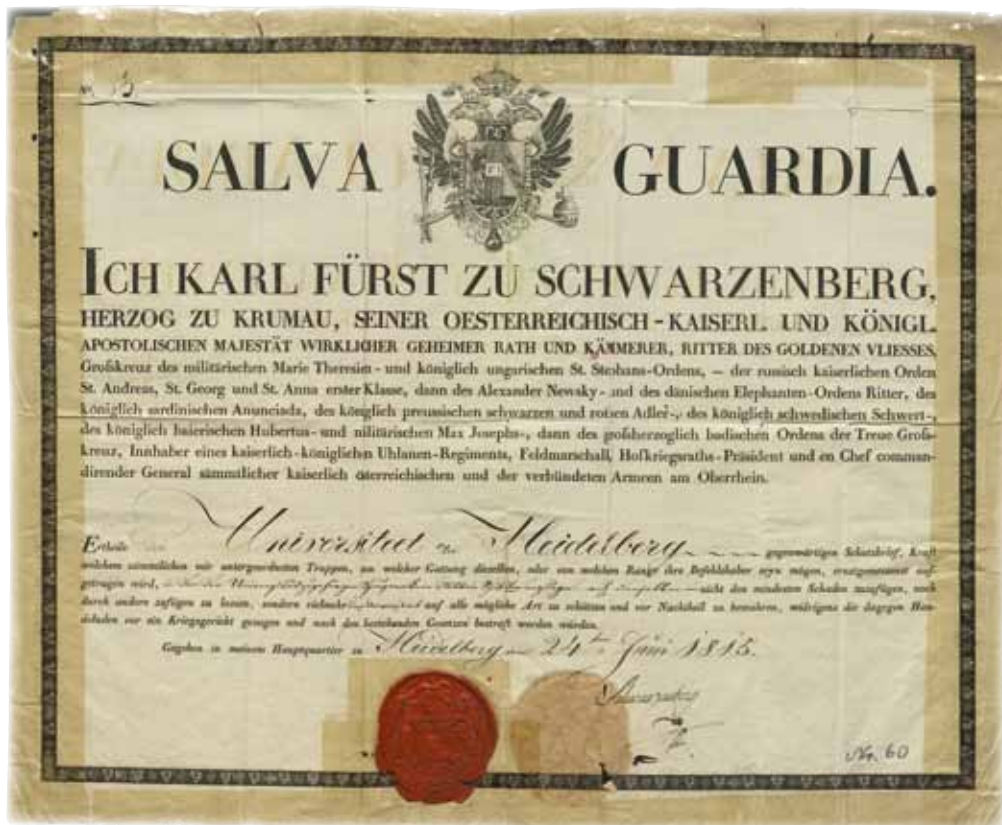 SALVA GUARDIA.
ICH KARL FÜRST ZU SCHWARZENBERG,
HERZOG ZU KRUMAU, SEINER OESTERREICHISCH-KAISERL. UND KÖNIGL.
APOSTOLISCHEN MAJESTÄT WIRKLICHER GEHEIMER RATH UND KÄMMERER, RITTER DES GOLDENEN VLIESSES,
Großkreuz des militärischen Marie Theresien- und königlich ungarischen St. Stephans-Ordens, – der russisch kaiserlichen Orden
St. Andreas, St. Georg und St. Anna erster Klasse, dann des Alexander Newsky- und des dänischen Elephanten-Ordens Ritter, des
königlich sardinischen Anunciada, des königlich preussischen schwarzen und rothen Adler-, des königlich schwedischen Schwert-,
des königlich baierischen Hubertus- und militärischen Max Josephs-, dann des großherzoglich badischen Ordens der Treue Groß-
kreuz, Innhaber eines kaiserlich-königlichen Uhlanen-Regiments, Feldmarschall, Hofkriegsraths-Präsident und en Chef comman-
dirender General sämmtlicher kaiserlich österreichischen und der verbündeten Armeen am Oberrhein.
Ertheile Universitaet zu Heidelberg gegenwärtigen Schutzbrief, Kraft
welchem sämmtlichen mir untergeordneten Truppen, von welcher Gattung dieselben, oder von welchem Range ihre Befehlshaber seyn mögen, ernstgemessenst auf-
getragen wird, nicht den mindesten Schaden zuzufügen, noch
durch andere zufügen zu lassen, sondern vielmehr auf alle mögliche Art zu schützen und vor Nachtheil zu bewahren, widrigens die dagegen Han-
delnden vor ein Kriegsgericht gezogen und nach den bestehenden Gesetzen bestraft werden würden.
Gegeben in meinem Hauptquartier zu Heidelberg am 24ten Juni 1815.
Nr. 60